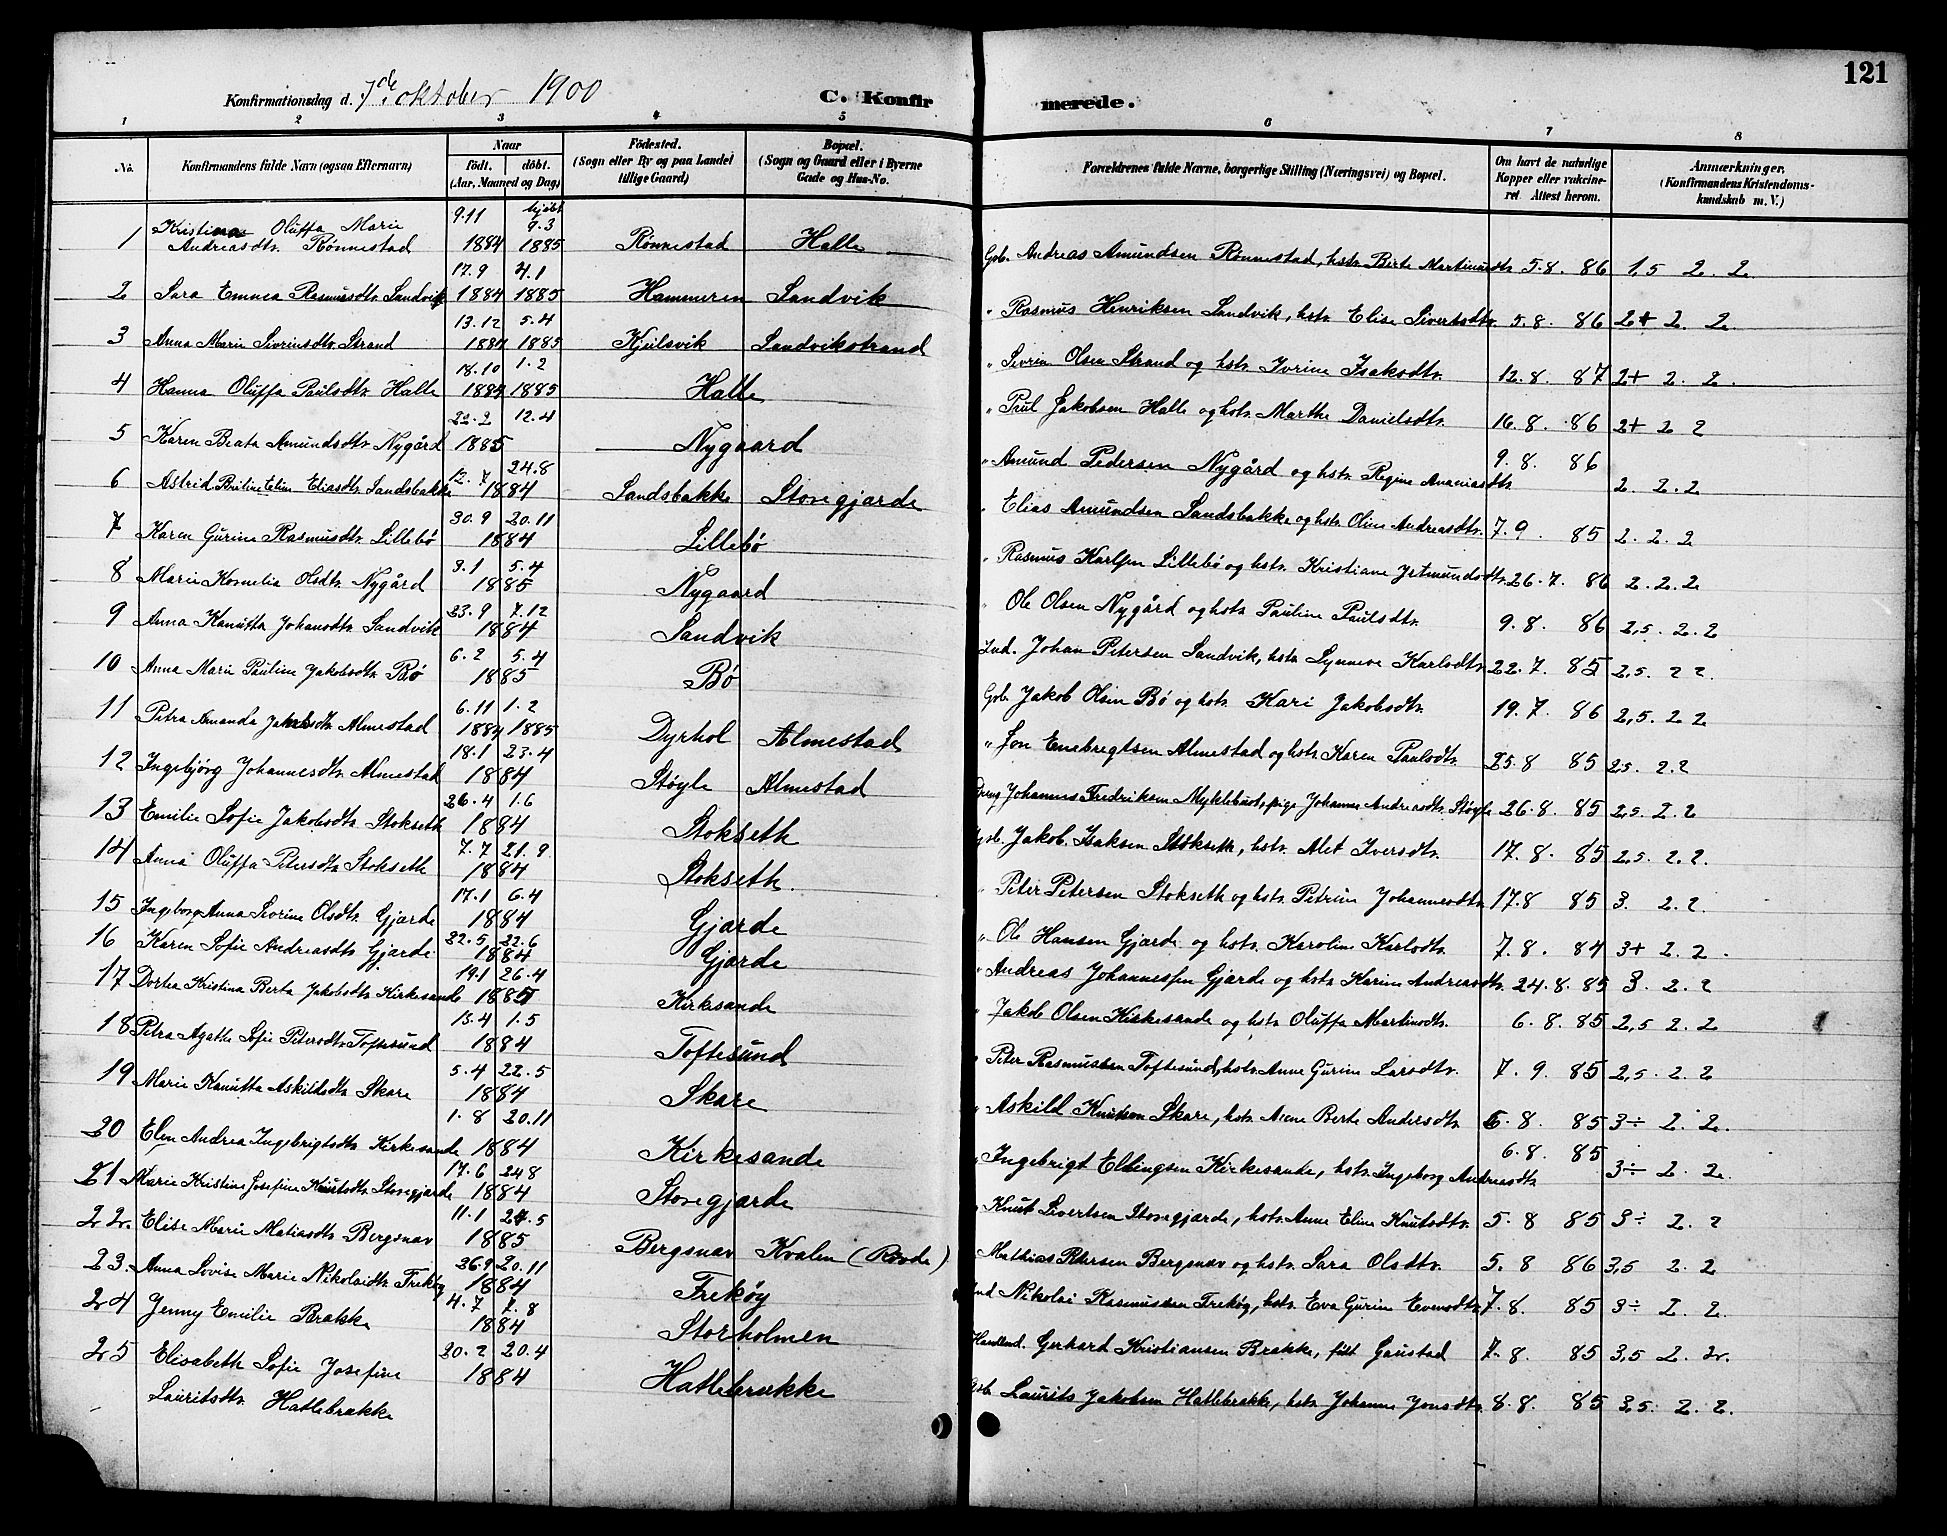 121
Konfirmationsdag d. 7de oktober 1900 C. Konfirmerede.
1 2 3 4 5 6 7 8
No. Konfirmandens fulde Navn (ogsaa Efternavn) Naar födt. döbt. (Aar, Maaned og Dag) Födested. (Sogn eller By og paa Landet tillige Gaard) Bopæl. (Sogn og Gaard eller i Byerne Gade og Hus-No. Forældrenes fulde Navne, borgerlige Stilling (Næringsvei) og Bopæl. Om havt de naturlige Kopper eller vakcineret Attest herom. Anmærkninger. (Konfirmandens Kristendomskundskab m. V.)
1 Kristina Oluffa Marie Andreasdtr. Rønnestad 9.11 1884 hjdbt 9.3 1885 Rønnestad Halle Gbr. Andreas Amundsen Rønnestad, hstr. Birte Martinusdtr 5.8. 86 1.5 2. 2.
2 Sara Emmea Rasmusdtr. Sandvik 17.9 1884 4.1 1885 Hammeren Sandvik " Rasmus Henriksen Sandvik, hstr. Elise Sivertsdtr. 5.8. 86 2+ 2. 2.
3 Anna Marie Sivrinsdtr. Strand 13.12 1884 5.4 1885 Kjeilsvik Sandvikstrand " Sevrin Olsen Strand og hstr. Ivrine Isaksdtr. 12.8. 87 2+ 2. 2.
4 Hanna Oluffa Paulsdtr. Halle 18.10 1884 1.2 1885 Halle " Paul Jakobsen Halle og hstr. Marthe Danielsdtr. 16.8. 86 2+ 2 2
5 Karen Beata Amundsdtr. Nygård 22.2 12.4 1885 Nygaard " Amund Pedersen Nygård og hstr. Regine Ananiasdtr 9.8. 86 2. 2.2
6 Astrid Eliasdtr. Sandsbakke 12.7 24.8 1884 Sandsbakke Storegjærde " Elias Amundsen Sandsbakke og hstr. Oline Andreasdtr. 7.9. 85 2. 2. 2
7 Karen Gurine Rasmusdtr. Lillebø 30.9 20.11 1884 Lillebø " Rasmus Karlsen Lillebø og hstr. Kristiane 26.7. 86 2. 2.2
8 Marie Kornelia Olsdtr. Nygård 3.1 5.4 1885 Nygaard " Ole Olsen Nygård og hstr. Pauline Paulsdtr. 9.8. 86 2,5. 2.2
9 Anna Kanutta Johansdtr. Sandvik 23.9 7.12 1884 Sandvik Ind. Johan Petersen Sandvik, hstr. Synneve Karlsdtr. 22.7. 85 2,5. 2 2.
10 Anna Marie Pauline Jakobsdtr. Bø 6.2 5.4 1885 Bø Gbr. Jakob Olsen Bø og hstr. Kari Jakobsdtr. 19.7. 86 2,5. 2 2
11 Petra Amanda Almestad 6.11 1884 1.2 1885 Dyrhol Almestad " Jon Almestad og hstr. Karen Paulsdtr. 25.8 85 2,5. 2.2
12 Ingebjørg Johannesdtr. Almestad 18.1 23.4 1884 Støyle Almestad Johannes Fredriksen Myklebust, pige Johanne Andreasdtr. Støyle 26.8. 85 2,5. 2.2
13 Emilie Sofie Jakobsdtr. Stokseth 26.4 1.6 1884 Stokseth Gbr. Jakob Isaksen Stokseth, hstr. Alet Iversdtr. 17.8. 85 2,5. 2.2.
14 Anna Oluffa Petersdtr. Stokseth 7.7 21.9 1884 Stokseth. " Peter Petersen Stokseth og hstr. Petrine Johannesdtr. 17.8 85 3. 2.2.
15 Ingeborg Anna Sevrine Olsdtr. Gjærde 17.1 6.4 1884 Gjærde " Ole Hansen Gjærde og hstr. Karoline Karlsdtr. 7.8. 84 3+ 2.2.
16 Karen Sofie Andreasdtr. Gjærde 22.5 22.6 1884 Gjærde " Andreas Johannesen Gjærde og hstr. Karine Andreasdtr. 24.8. 85 3. 2.2
17 Dortea Kristina Berta Jakobsdtr. Kirkesande 19.1 26.4 1885 Kirkesande " Jakob Olsen Kirkesande og hstr. Oluffa Martinsdtr. 6.8. 85 2,5 2.2
18 Petra Agathe Sofie Petersdtr. Toftesund 13.4 1.5 1884 Toftesund " Peter Rasmussen Toftesund, hstr. Anne Gurine Larsdtr. 7.9. 85 2,5. 2. 2
19 Marie Kanutta Askildsdtr. Skare 5.4 22.5 1884 Skare " Askild Knutsen Skare, hstr. Anne Berte Andersdtr. 6.8. 85 3÷ 2. 2.
20 Elen Andrea Ingebrigtsdtr. Kirkesande 1.8 20.11 1884 Kirkesande " Ingebrigt Ellingsen Kirkesande, hstr. Ingeborg Andreasdtr. 6.8. 85 3÷ 2. 2.
21 Marie Kristine Josefine Knutsdtr. Storegjærde 17.6 24.8 1884 Storegjærde " Knut Sivertsen Storegjærde, hstr. Anne Eline Knutsdtr. 5.8 85 3÷ 2. 2
22. Elise Marie Matiasdtr. Bergsnav 11.1 24.5 1885 Bergsnav Kvalen (Rovde) Mathias Petersen Bergsnav og hstr. Sara Olsdtr. 5.8 86 3,5 2. 2
23. Anna Lovise Marie Nikolaidtr. Frekøy 26.9 20.11 1884 Frekøy Ind Nikolai Rasmussen Frekøy, hstr. Eva Gurine Evensdtr. 7.8. 85 3÷ 2. 2.
24 Jenny Emilie Brakke 4.7 7.8 1884 Storholmen Handlend. Gerhard Kristiansen Brakke, født Gaustad 7.8. 85 3,5 2. 2.
25 Elisabeth Sofie Josefine Lauritsdtr. Hatlebrække 20.2 20.4 1884 Hatlebrække Gbr. Laurits Jakobsen Hatlebrække, hstr. Johanne Jonsdtr. 8.8. 85 3,5. 2. 2.